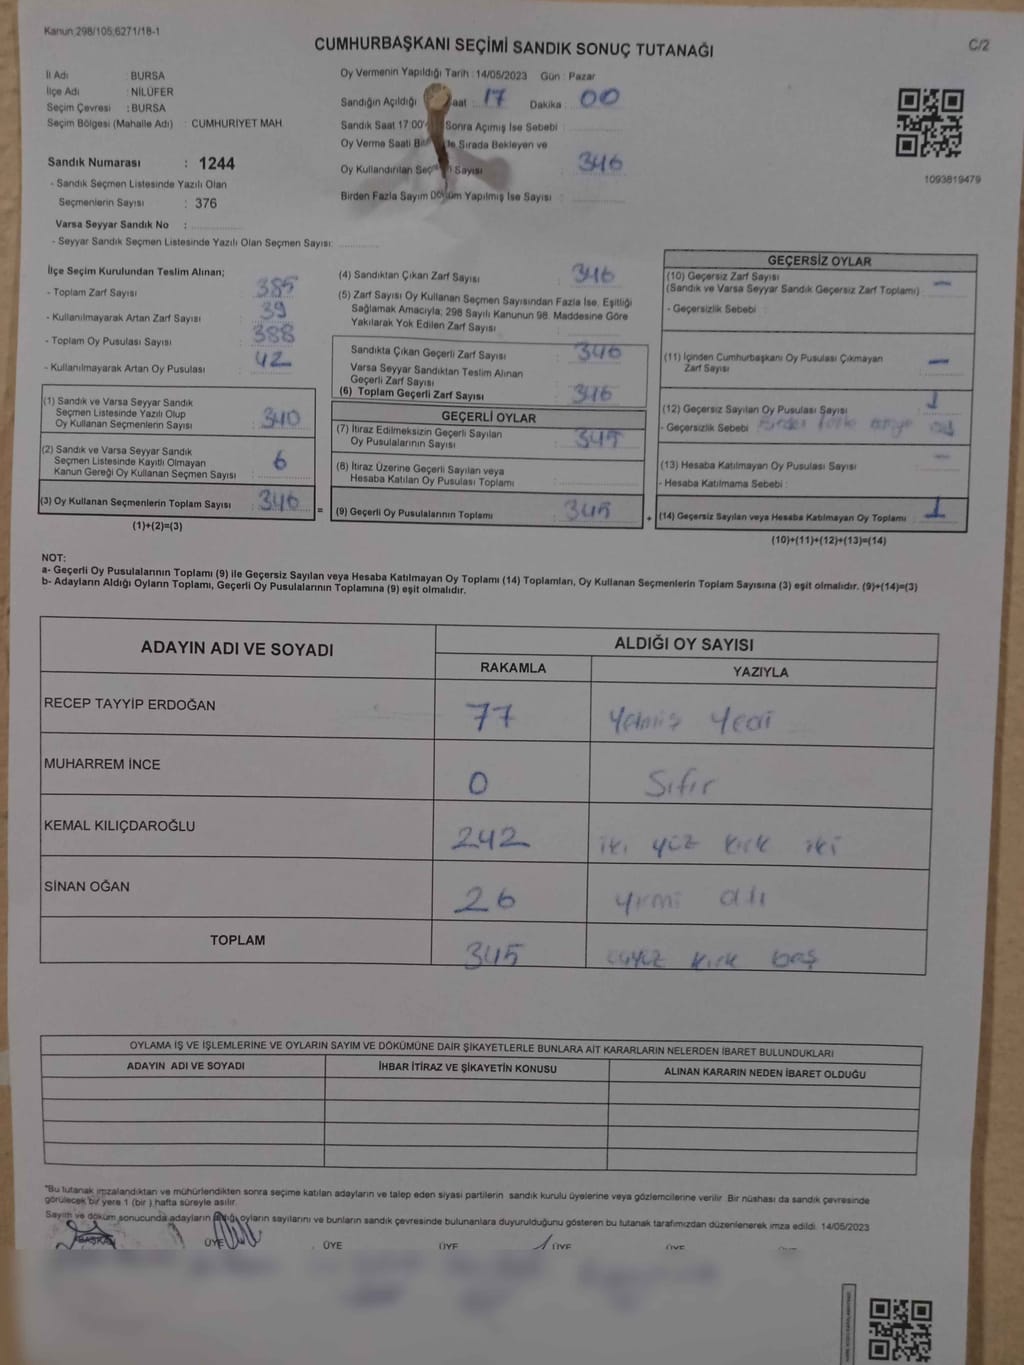 Kanun:298/105,6271/18-1
C/2
CUMHURBAŞKANI SEÇİMİ SANDIK SONUÇ TUTANAĞI
İl Adı : BURSA
İlçe Adı : NİLÜFER
Seçim Çevresi : BURSA
Seçim Bölgesi (Mahalle Adı) : CUMHURİYET MAH.
Sandık Numarası : 1244
- Sandık Seçmen Listesinde Yazılı Olan
Seçmenlerin Sayısı : 376
Varsa Seyyar Sandık No :
- Seyyar Sandık Seçmen Listesinde Yazılı Olan Seçmen Sayısı:
Oy Vermenin Yapıldığı Tarih : 14/05/2023 Gün : Pazar
Sandığın Açıldığı aat 17 Dakika : 00
Sandık Saat 17:00' Sonra Açımış İse Sebebi :
Oy Verme Saati Sırada Bekleyen ve
Oy Kullandırılan Seç Sayısı : 346
Birden Fazla Sayım Yapılmış İse Sayısı :
1093819479
İlçe Seçim Kurulundan Teslim Alınan;
- Toplam Zarf Sayısı : 385
- Kullanılmayarak Artan Zarf Sayısı : 39
- Toplam Oy Pusulası Sayısı : 388
- Kullanılmayarak Artan Oy Pusulası : 42
(1) Sandık ve Varsa Seyyar Sandık
Seçmen Listesinde Yazılı Olup
Oy Kullanan Seçmenlerin Sayısı : 340
(2) Sandık ve Varsa Seyyar Sandık
Seçmen Listesinde Kayıtlı Olmayan
Kanun Gereği Oy Kullanan Seçmen Sayısı : 6
(3) Oy Kullanan Seçmenlerin Toplam Sayısı : 346
(1)+(2)=(3)
(4) Sandıktan Çıkan Zarf Sayısı : 346
(5) Zarf Sayısı Oy Kullanan Seçmen Sayısından Fazla İse, Eşitliği
Sağlamak Amacıyla; 298 Sayılı Kanunun 98. Maddesine Göre
Yakılarak Yok Edilen Zarf Sayısı :
Sandıkta Çıkan Geçerli Zarf Sayısı : 346
Varsa Seyyar Sandıktan Teslim Alınan
Geçerli Zarf Sayısı :
(6) Toplam Geçerli Zarf Sayısı : 346
GEÇERLİ OYLAR
(7) İtiraz Edilmeksizin Geçerli Sayılan
Oy Pusulalarının Sayısı : 345
(8) İtiraz Üzerine Geçerli Sayılan veya
Hesaba Katılan Oy Pusulası Toplamı :
= (9) Geçerli Oy Pusulalarının Toplamı : 345
GEÇERSİZ OYLAR
(10) Geçersiz Zarf Sayısı
(Sandık ve Varsa Seyyar Sandık Geçersiz Zarf Toplamı) : —
- Geçersizlik Sebebi :
(11) İçinden Cumhurbaşkanı Oy Pusulası Çıkmayan
Zarf Sayısı : —
(12) Geçersiz Sayılan Oy Pusulası Sayısı : 1
- Geçersizlik Sebebi
(13) Hesaba Katılmayan Oy Pusulası Sayısı : —
- Hesaba Katılmama Sebebi :
+ (14) Geçersiz Sayılan veya Hesaba Katılmayan Oy Toplamı : 1
(10)+(11)+(12)+(13)=(14)
NOT:
a- Geçerli Oy Pusulalarının Toplamı (9) ile Geçersiz Sayılan veya Hesaba Katılmayan Oy Toplamı (14) Toplamları, Oy Kullanan Seçmenlerin Toplam Sayısına (3) eşit olmalıdır. (9)+(14)=(3)
b- Adayların Aldığı Oyların Toplamı, Geçerli Oy Pusulalarının Toplamına (9) eşit olmalıdır.
ADAYIN ADI VE SOYADI
ALDIĞI OY SAYISI
RAKAMLA YAZIYLA
RECEP TAYYİP ERDOĞAN 77 Yetmiş Yedi
MUHARREM İNCE 0 Sıfır
KEMAL KILIÇDAROĞLU 242 iki yüz kırk iki
SİNAN OĞAN 26 yirmi altı
TOPLAM 345 üçyüz kırk beş
OYLAMA İŞ VE İŞLEMLERİNE VE OYLARIN SAYIM VE DÖKÜMÜNE DAİR ŞİKAYETLERLE BUNLARA AİT KARARLARIN NELERDEN İBARET BULUNDUKLARI
ADAYIN ADI VE SOYADI İHBAR İTİRAZ VE ŞİKAYETİN KONUSU ALINAN KARARIN NEDEN İBARET OLDUĞU
"Bu tutanak imzalandıktan ve mühürlendikten sonra seçime katılan adayların ve talep eden siyasi partilerin sandık kurulu üyelerine veya gözlemcilerine verilir. Bir nüshası da sandık çevresinde
görülecek bir yere 1 (bir ) hafta süreyle asılır.
Sayım ve döküm sonucunda adayların aldığı oyların sayılarını ve bunların sandık çevresinde bulunanlara duyurulduğunu gösteren bu tutanak tarafımızdan düzenlenerek imza edildi. 14/05/2023
BAŞKAN ÜYE ÜYE ÜYE ÜYE ÜYE